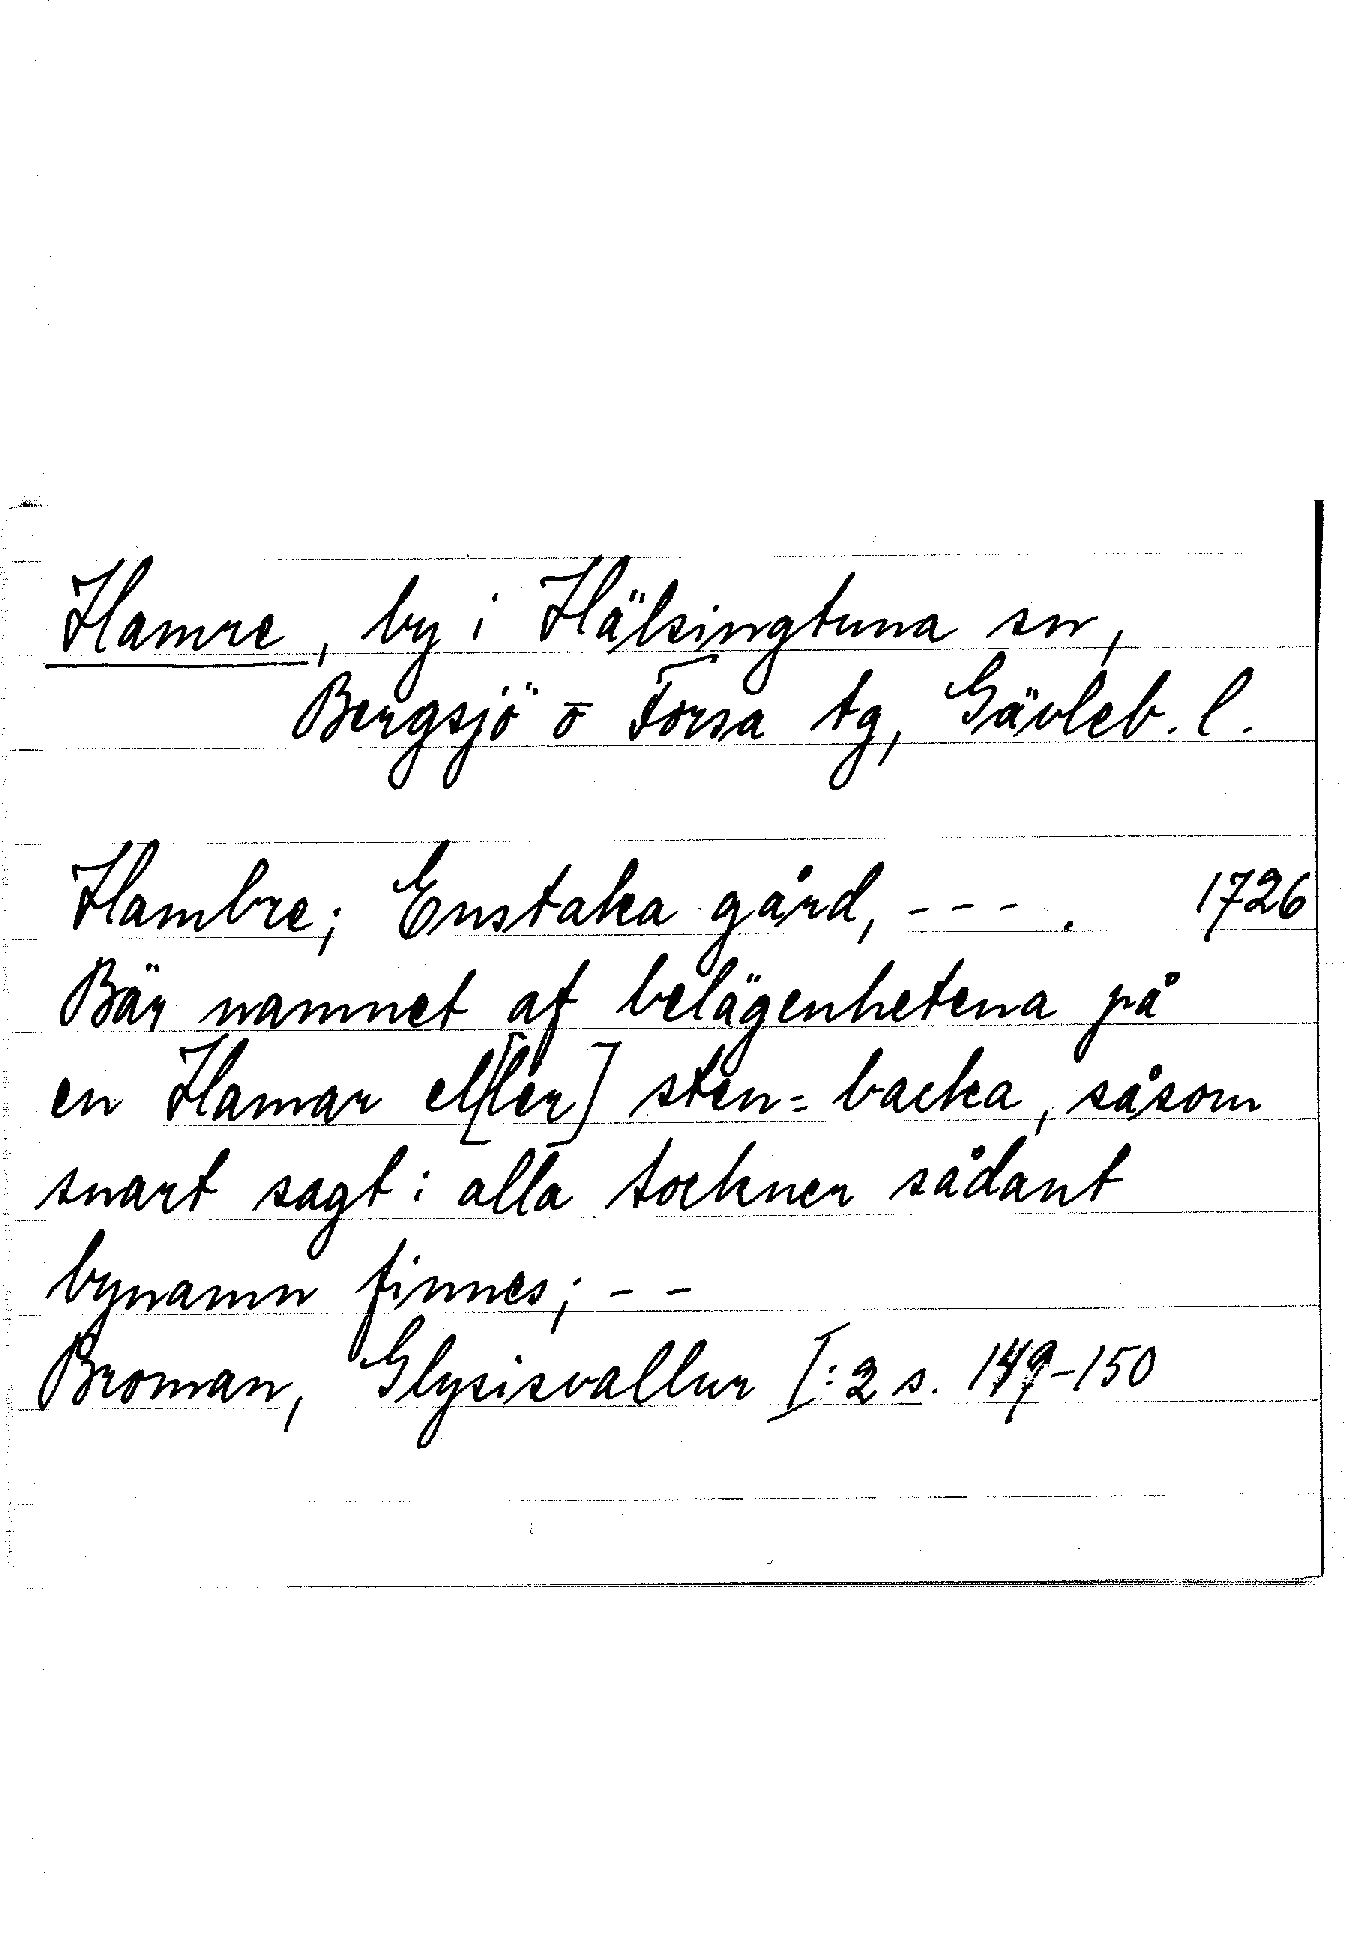 Hamre, by i Hälsingtuna sn,
Bergsjö o Forsa tg, Gävleb. l.
Hambre; Enstaka gård, - - - . 1726
Bär namnet af belägenhetena på
en Hamar el[ler] sten= backa, såsom
snart sagt i alla sockner sådant
bynamn finnes; - -
Broman, Glysisvallur I:2 s. 149-150